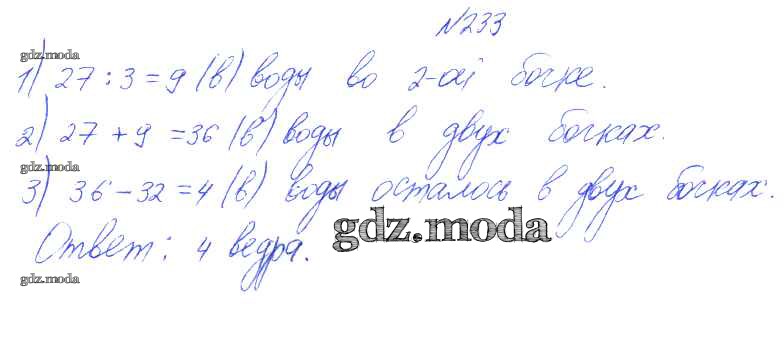 №233
gdz.moda
1) 27 : 3 = 9 (в) воды во 2-ой бочке.
2) 27 + 9 = 36 (в) воды в двух бочках.
gdz.moda
3) 36 - 32 = 4 (в) воды осталось в двух бочках.
gdz.moda
Ответ: 4 ведра.
gdz.moda